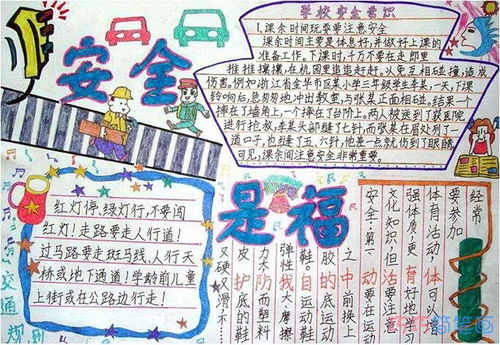 安全
是福
学校安全常识
1.课余时间玩耍要注意安全
课余时间主要是休息好,并做好上课的
准备工作,下课时,千万不要在走郎里
推推攘攘,在校园里追追赶赶,以免互相碰撞,造成
伤害,例如浙江省金华市区某小学三年级学生李某,一天,下课
铃响后,急匆匆地冲出教室,与张某正面相碰,结果一个
摔在了墙角上,一个摔在了台阶上,两人被送到了医院
进行抢救,李某头部缝了七针,而张某在眉处列了一
道口子,也缝了五、六针,他差一点就伤到了眼睛
可见,课余间注意安全非常重要。
红灯停,绿灯行,不要闯
红灯!走路要走人行道!
过马路要走斑马线、人行天
桥或地下通道!学龄前儿童
上街或在公路边行走!
交通规则
经常
要参加
体育活动,体可以增
强体质,更育好地学习
文化知识,但活要注意
安全:第一动要在运动
之中前换上
胶的底运动
鞋。自运动鞋
弹性我大摩擦
力防而塑料
皮护底的鞋
又硬又滑,不